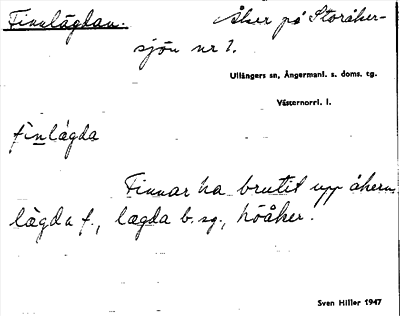 Finnlägdan. Åker på Storåker-
sjön nr 1.
Ullångers sn, Ångermanl. s. doms. tg.
Västernorrl. l.
fìnlágda
Finnar ha brutit upp åkern
lägda f., lagda b. sg., höåker.
Sven Hiller 1947